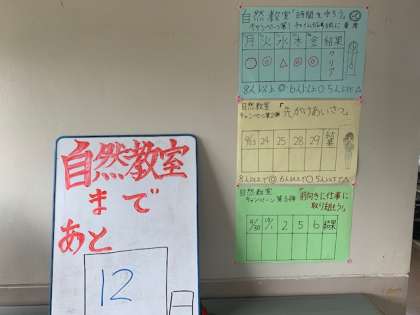 自然教室
まで
あと
12
自然教室「時間を守ろう」
月 火 水 木 金 結果
◯ ◎ △ ◎ ◎ クリア
8人以上◎ 6人以上○ 5人以下△
自然教室
キャンペーン第2弾「先がけあいさつ」
9/23 24 25 28 29 結果
8人以上で◎ 6人以上で○ 5人以下で△
自然教室
キャンペーン第3弾「前向きに仕事に
取り組もう」
9/30 10/1 2 5 6 結果